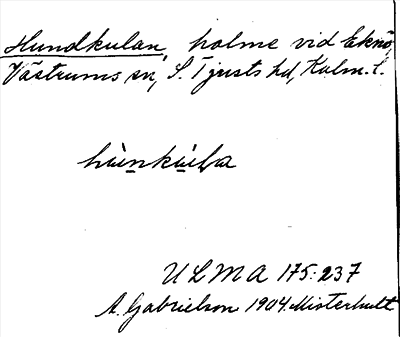 Hundkulan, holme vid Eknö,
Västrums sn, S. Tjusts hd, Kalm. l.
hùnkùlla
ULMA 175:237
A. Gabrielson 1904. Misterhult